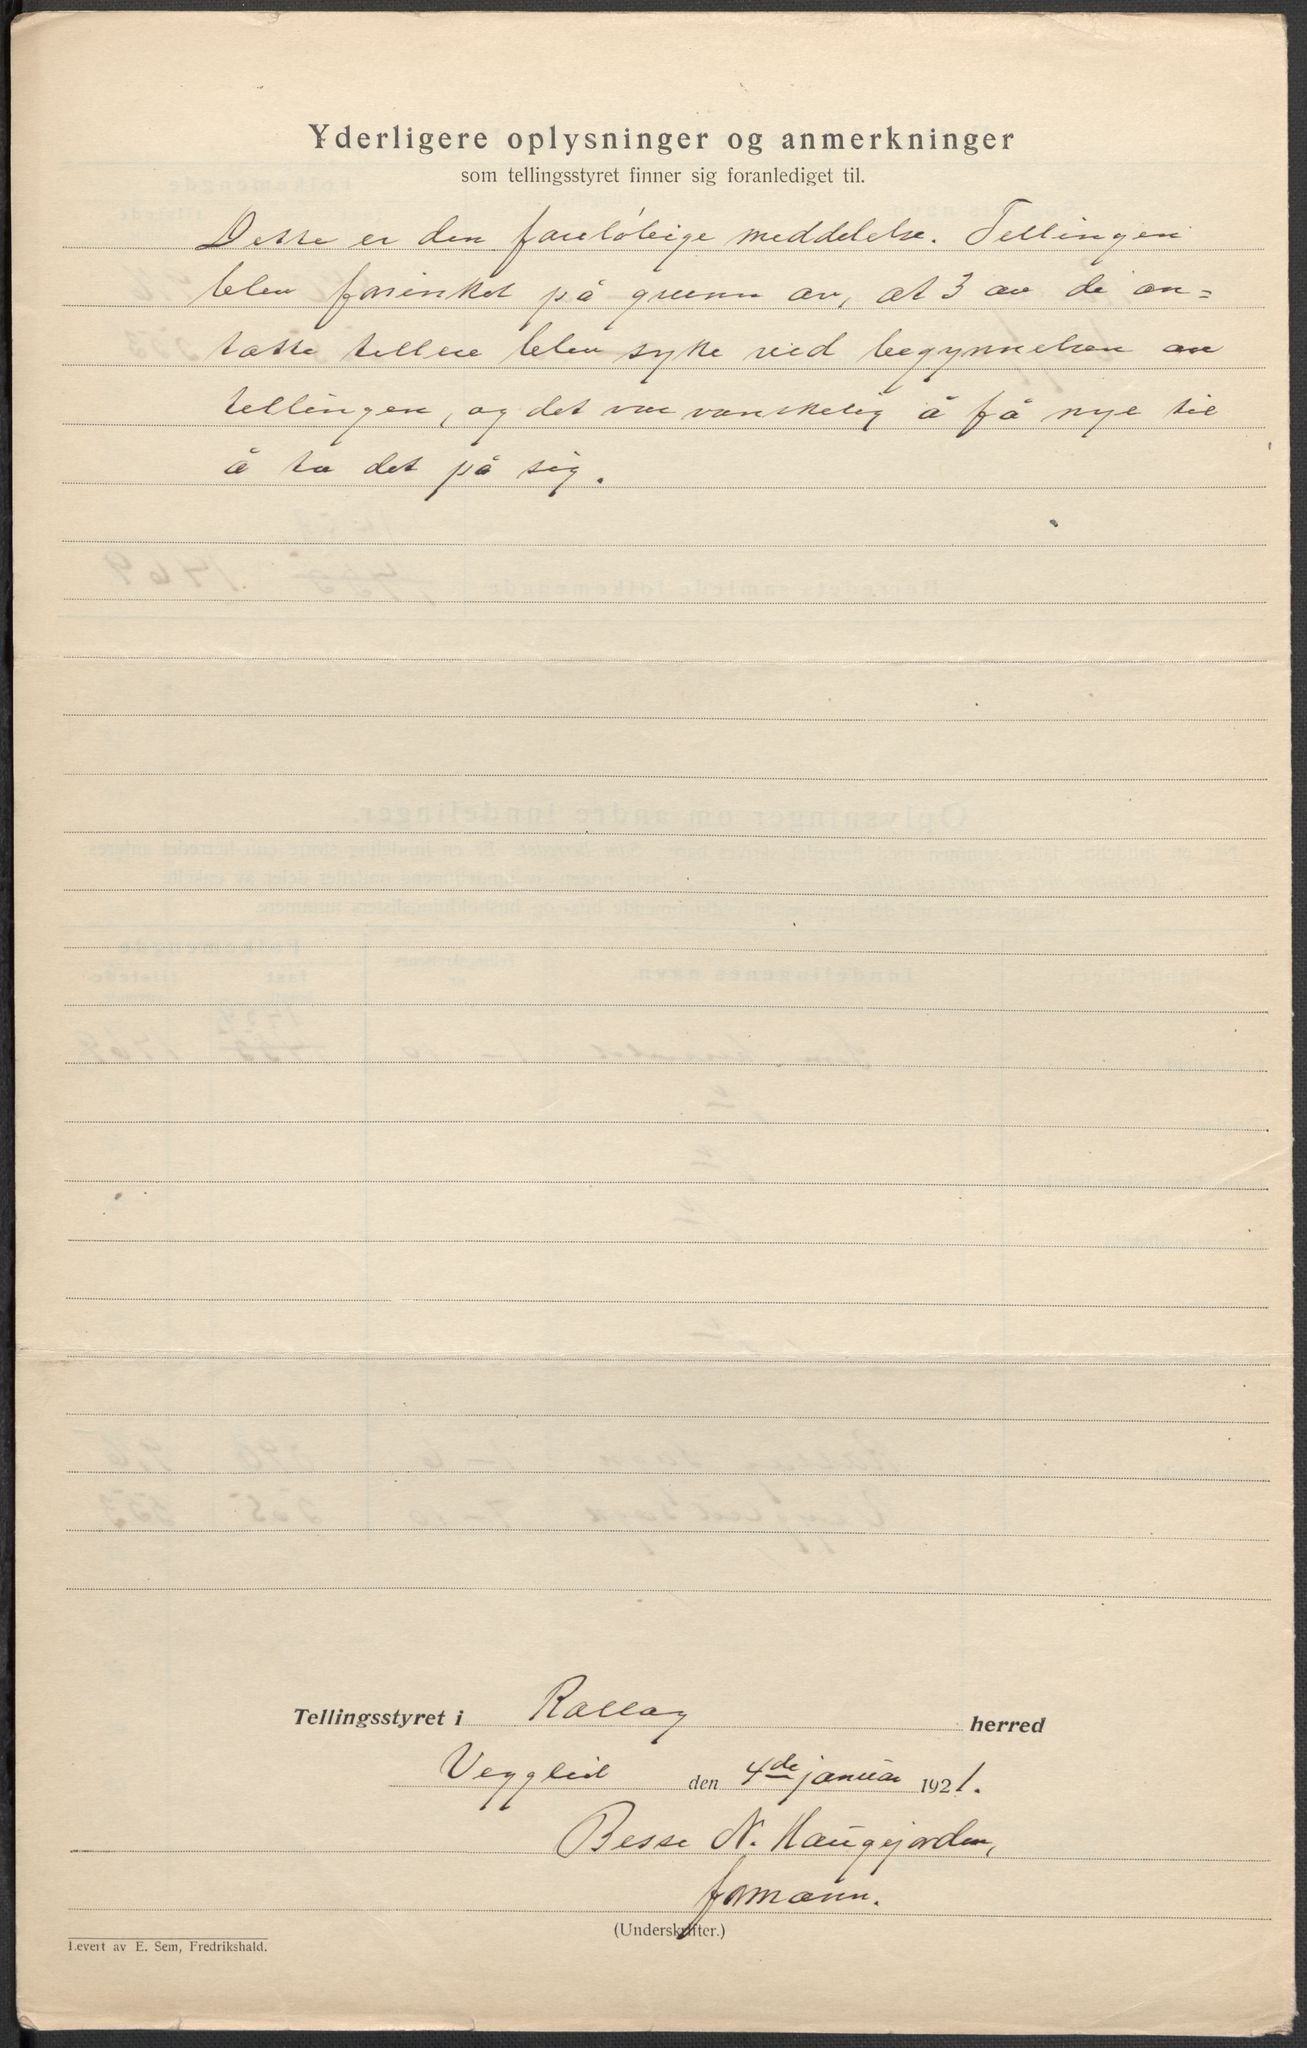 Yderligere oplysninger og anmerkninger
som tellingsstyret finner sig foranlediget til.
Dette er den foreløbige meddelelse. Tellingen
blev forsinket på grunn av, at 3 av de an=
tatte tellere blev syke ved begynnelsen av
tellingen, og det var vanskelig å få nye til
å ta det på sig.
Tellingsstyret i Rollag herred
Veggli den 4de januar 1921.
Besse N. Haugejorden,
formann.
(Underskrifter.)
Levert av E. Sem, Fredrikshald.